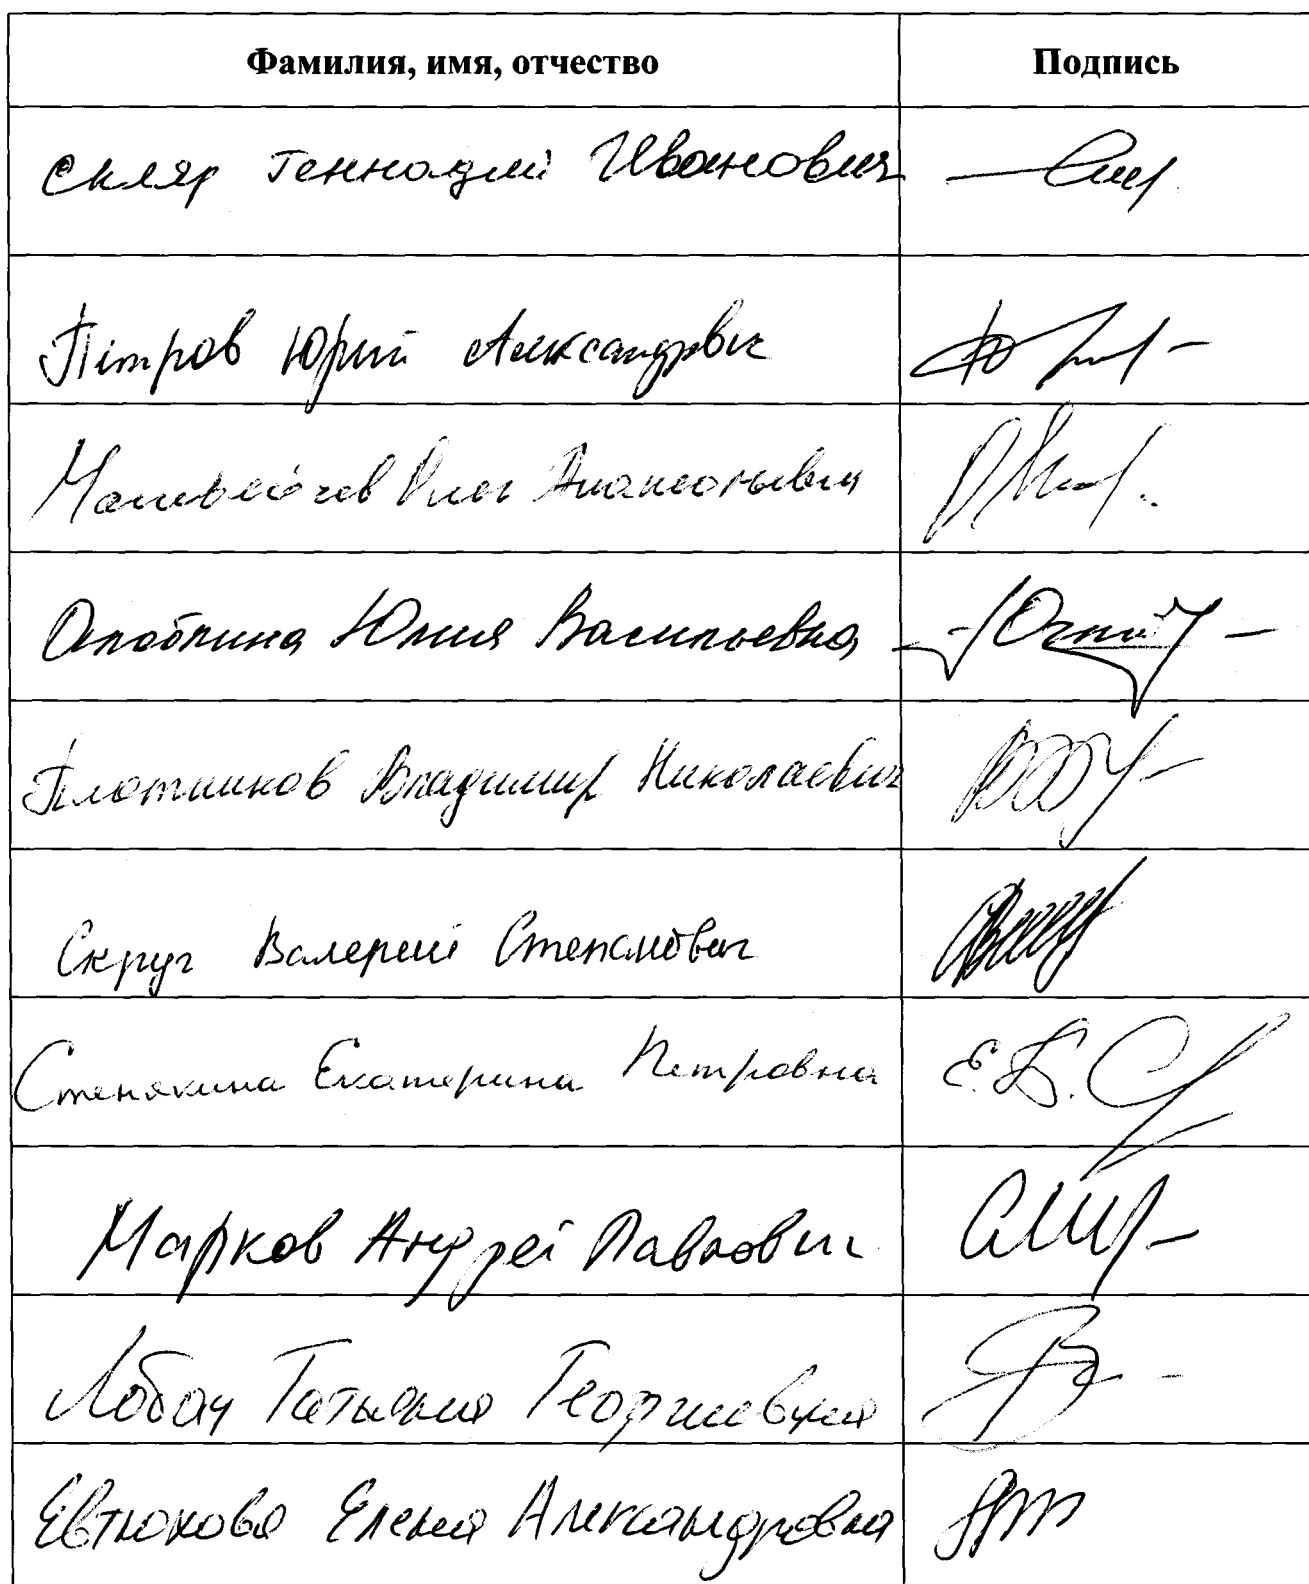 Фамилия, имя, отчество Подпись
Скляр Геннадий Иванович
Петров Юрий Александрович
Олег
Юлия Васильевна
Плотников Владимир Николаевич
Скруг Валерий Степанович
Стенякина Екатерина Петровна Е.П.С
Марков Андрей Павлович
Лобач Татьяна Георгиевна
Евтюкова Елена Александровна